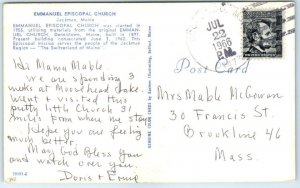 EMMANUEL EPISCOPAL CHURCH
Jackman, Maine
EMMANUEL EPISCOPAL CHURCH was started in
1955, utilizing materials from the original EMMAN-
UEL CHURCH, Deerstown, Maine, built in 1897.
Present building consecrated June 3, 1962. The
Episcopal mission serves the people of the Jackman
Region — "The Switzerland of Maine".
Hi Mama Mable.
We are spending 3
weeks at Moosehead Lake.
Went & visited this
pretty little Church 31
miles from where we stay
Hope you are feeling
much better.
May God Bless you
and watch over you.
Doris + Ernie
JUL
22
1966
PM
Post Card
Mrs Mable McGowan
30 Francis St.
Brookline 46
Mass.